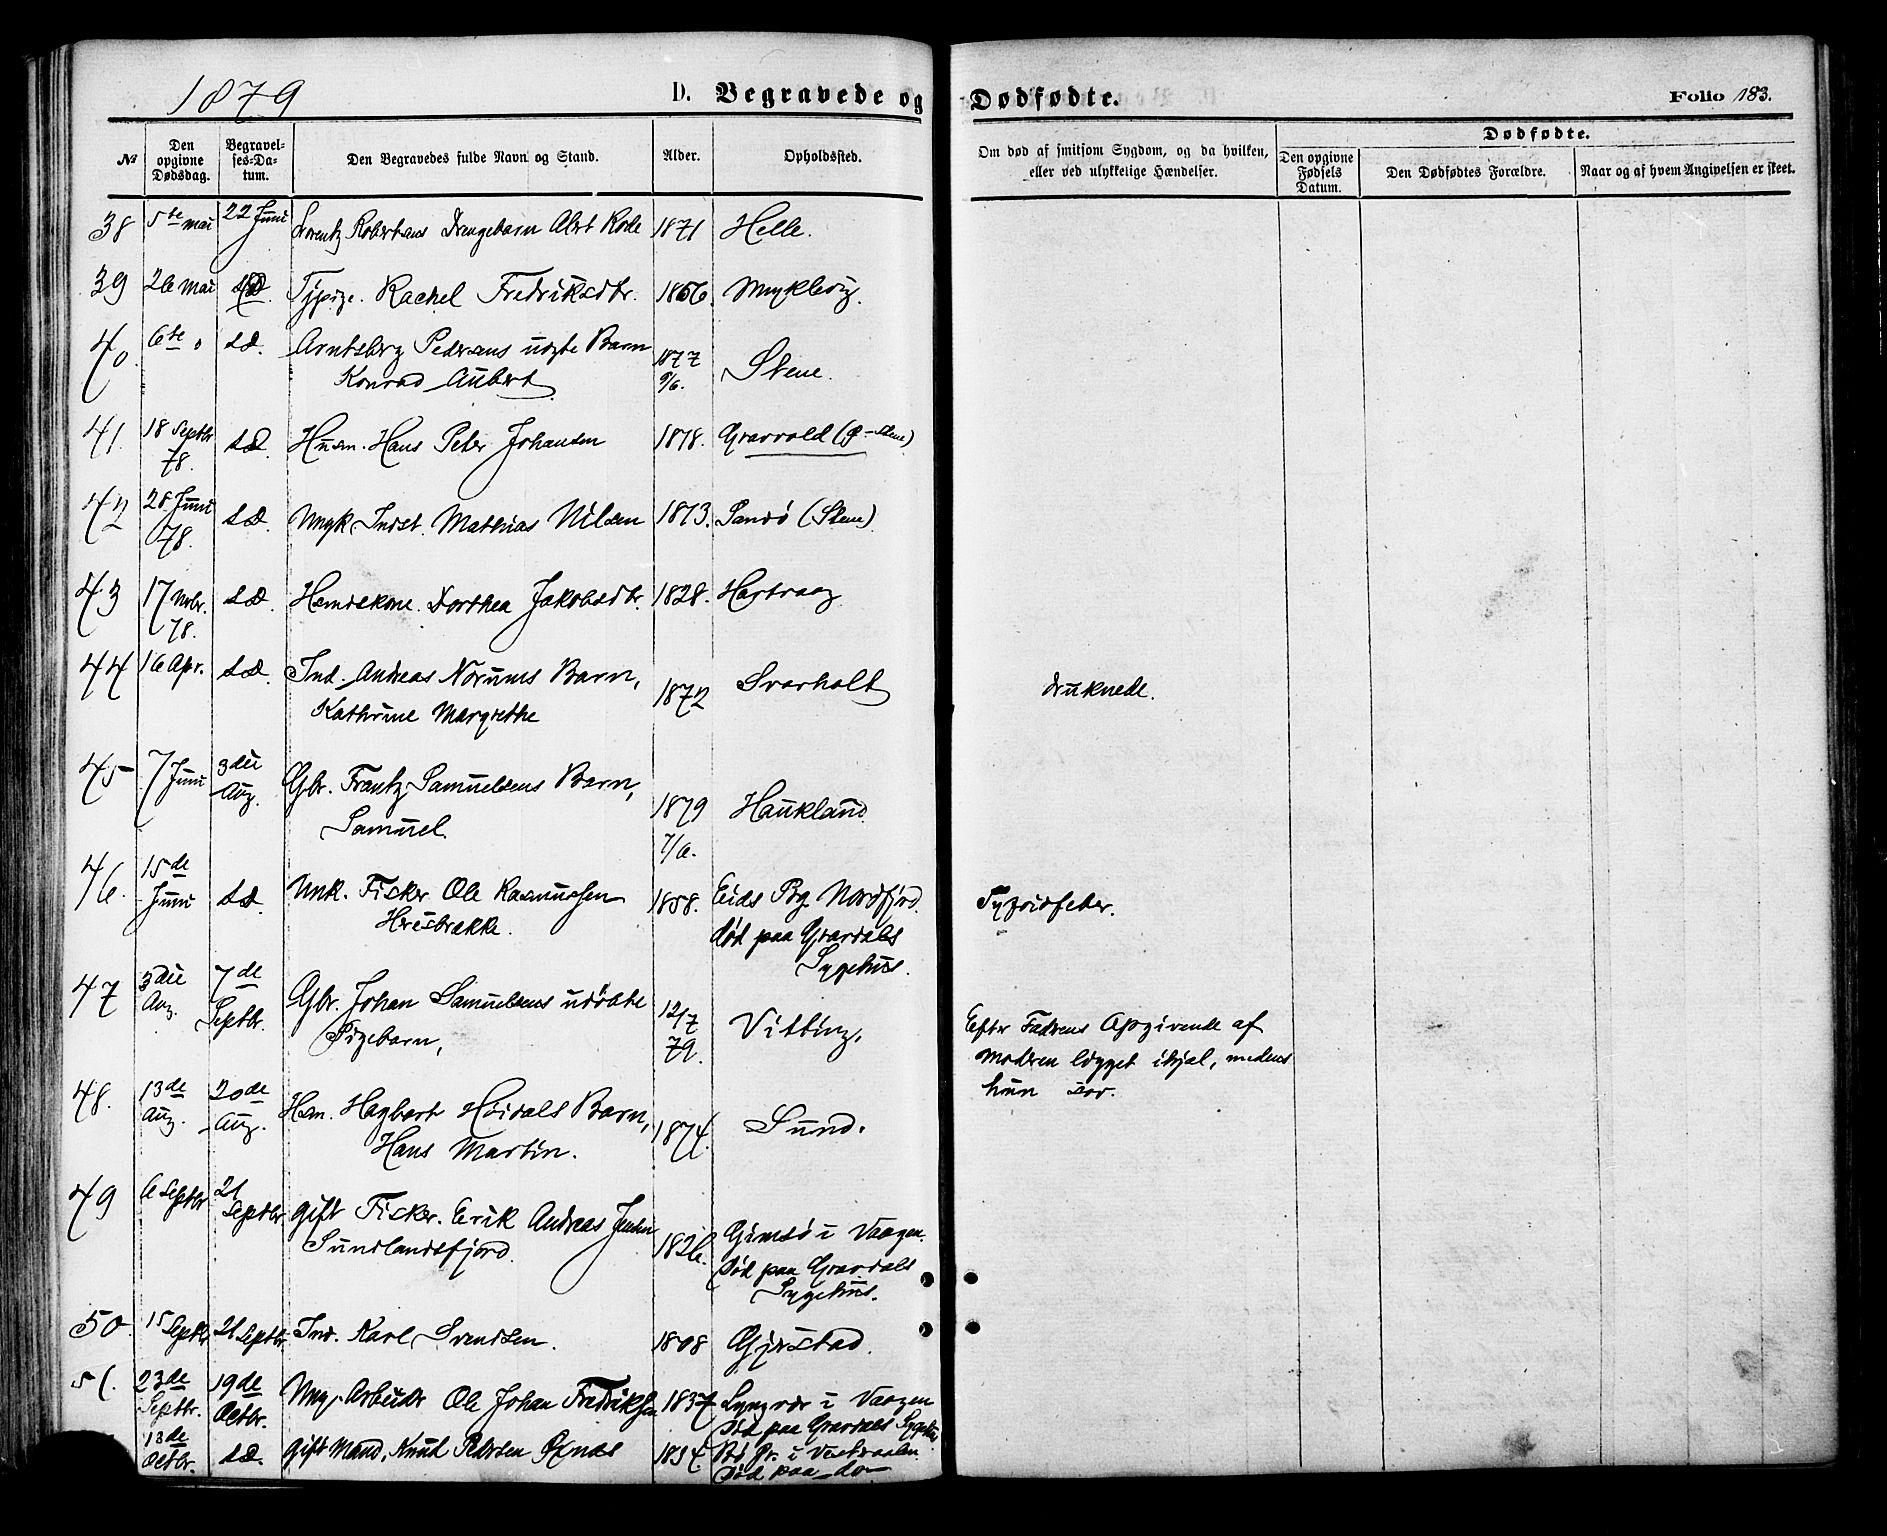 1879
D. Begravede og Dødfødte.
Folio 183.
№
Den opgivne Dødsdag.
Begravelses-Datum.
Den Begravedes fulde Navn og Stand.
Alder.
Opholdssted.
Om død af smitsom Sygdom, og da hvilken, eller ved ulykkelige Hændelser.
Dødfødte.
Den opgivne Fødsels Datum.
Den Dødfødtes Forældre.
Naar og af hvem Angivelsen er skeet.
38 5te mai 22 Juni Lorentz Robertsens Drengebarn Albert Kode 1871 Helle.
39 26 mai s.D. Rachel Fredriksdtr. 1866. Myklevig.
40 6te " s.D. Arntsberg Pedersens uægte Barn 1877 Stene.
Konrad Aubert 9/6.
41. 18 Septbr 78. s.D. Husm. Hans Peter Johansen 1878. Gravvold (p. Stene)
42 28 Juni 78. s.D. Ungk. Indst. Mathias Nilsen 1873. Sandø (Stene)
43 17 Novbr. 78. s.D. Hsmdskone. Dorthea Jakobsdtr. 1828. Hartvaag
44 16 Apr. s.D. Ind. Andreas Norums Barn, 1872 Svarholt druknede.
Kathrine Margrethe
45 7 Juni 3die Aug. Gbr. Frantz Samuelsens Barn, 1879 7/6. Haukland
Samuel.
46. 15de Juni s.D. Unk. Fisker Ole Rasmussen 1858. Eids Pg. Nordfjord. Tyfoidfeber.
død paa Gravdals Sygehus.
47 3die Aug. 7de Septbr. Gbr. Johan Samuelsens udøbte 12/7 79. Vitting,
Pigebarn,
Efter Faderens Opgivende af
Moderen ligget ihjel, medens
hun sov.
48. 13de Aug. 20de Aug. Hsm. Hagbart Høidals Barn, 1874. Sund.
Hans Martin.
49 6 Septbr 21 Septbr gift Fisker. Erik Andreas Jensen 1826. Gimsø i Vaagen.
Sundlandsfjord. død paa Gravdals
Sygehus.
50. 15 Septbr 21 Septbr. Ind. Karl Svendsen. 1808 Gjerstad.
51. 23de Septbr. 19de Octbr. Ung. Arbeider Ole Johan Fredriksen 1837 Lyngvær i Vaagen
død paa Gravdals Sygehus
13de Octbr. s.D. gift Mand, Knud Pedersen 1834. Bø Pr. i Vesteraalen.
død paa do